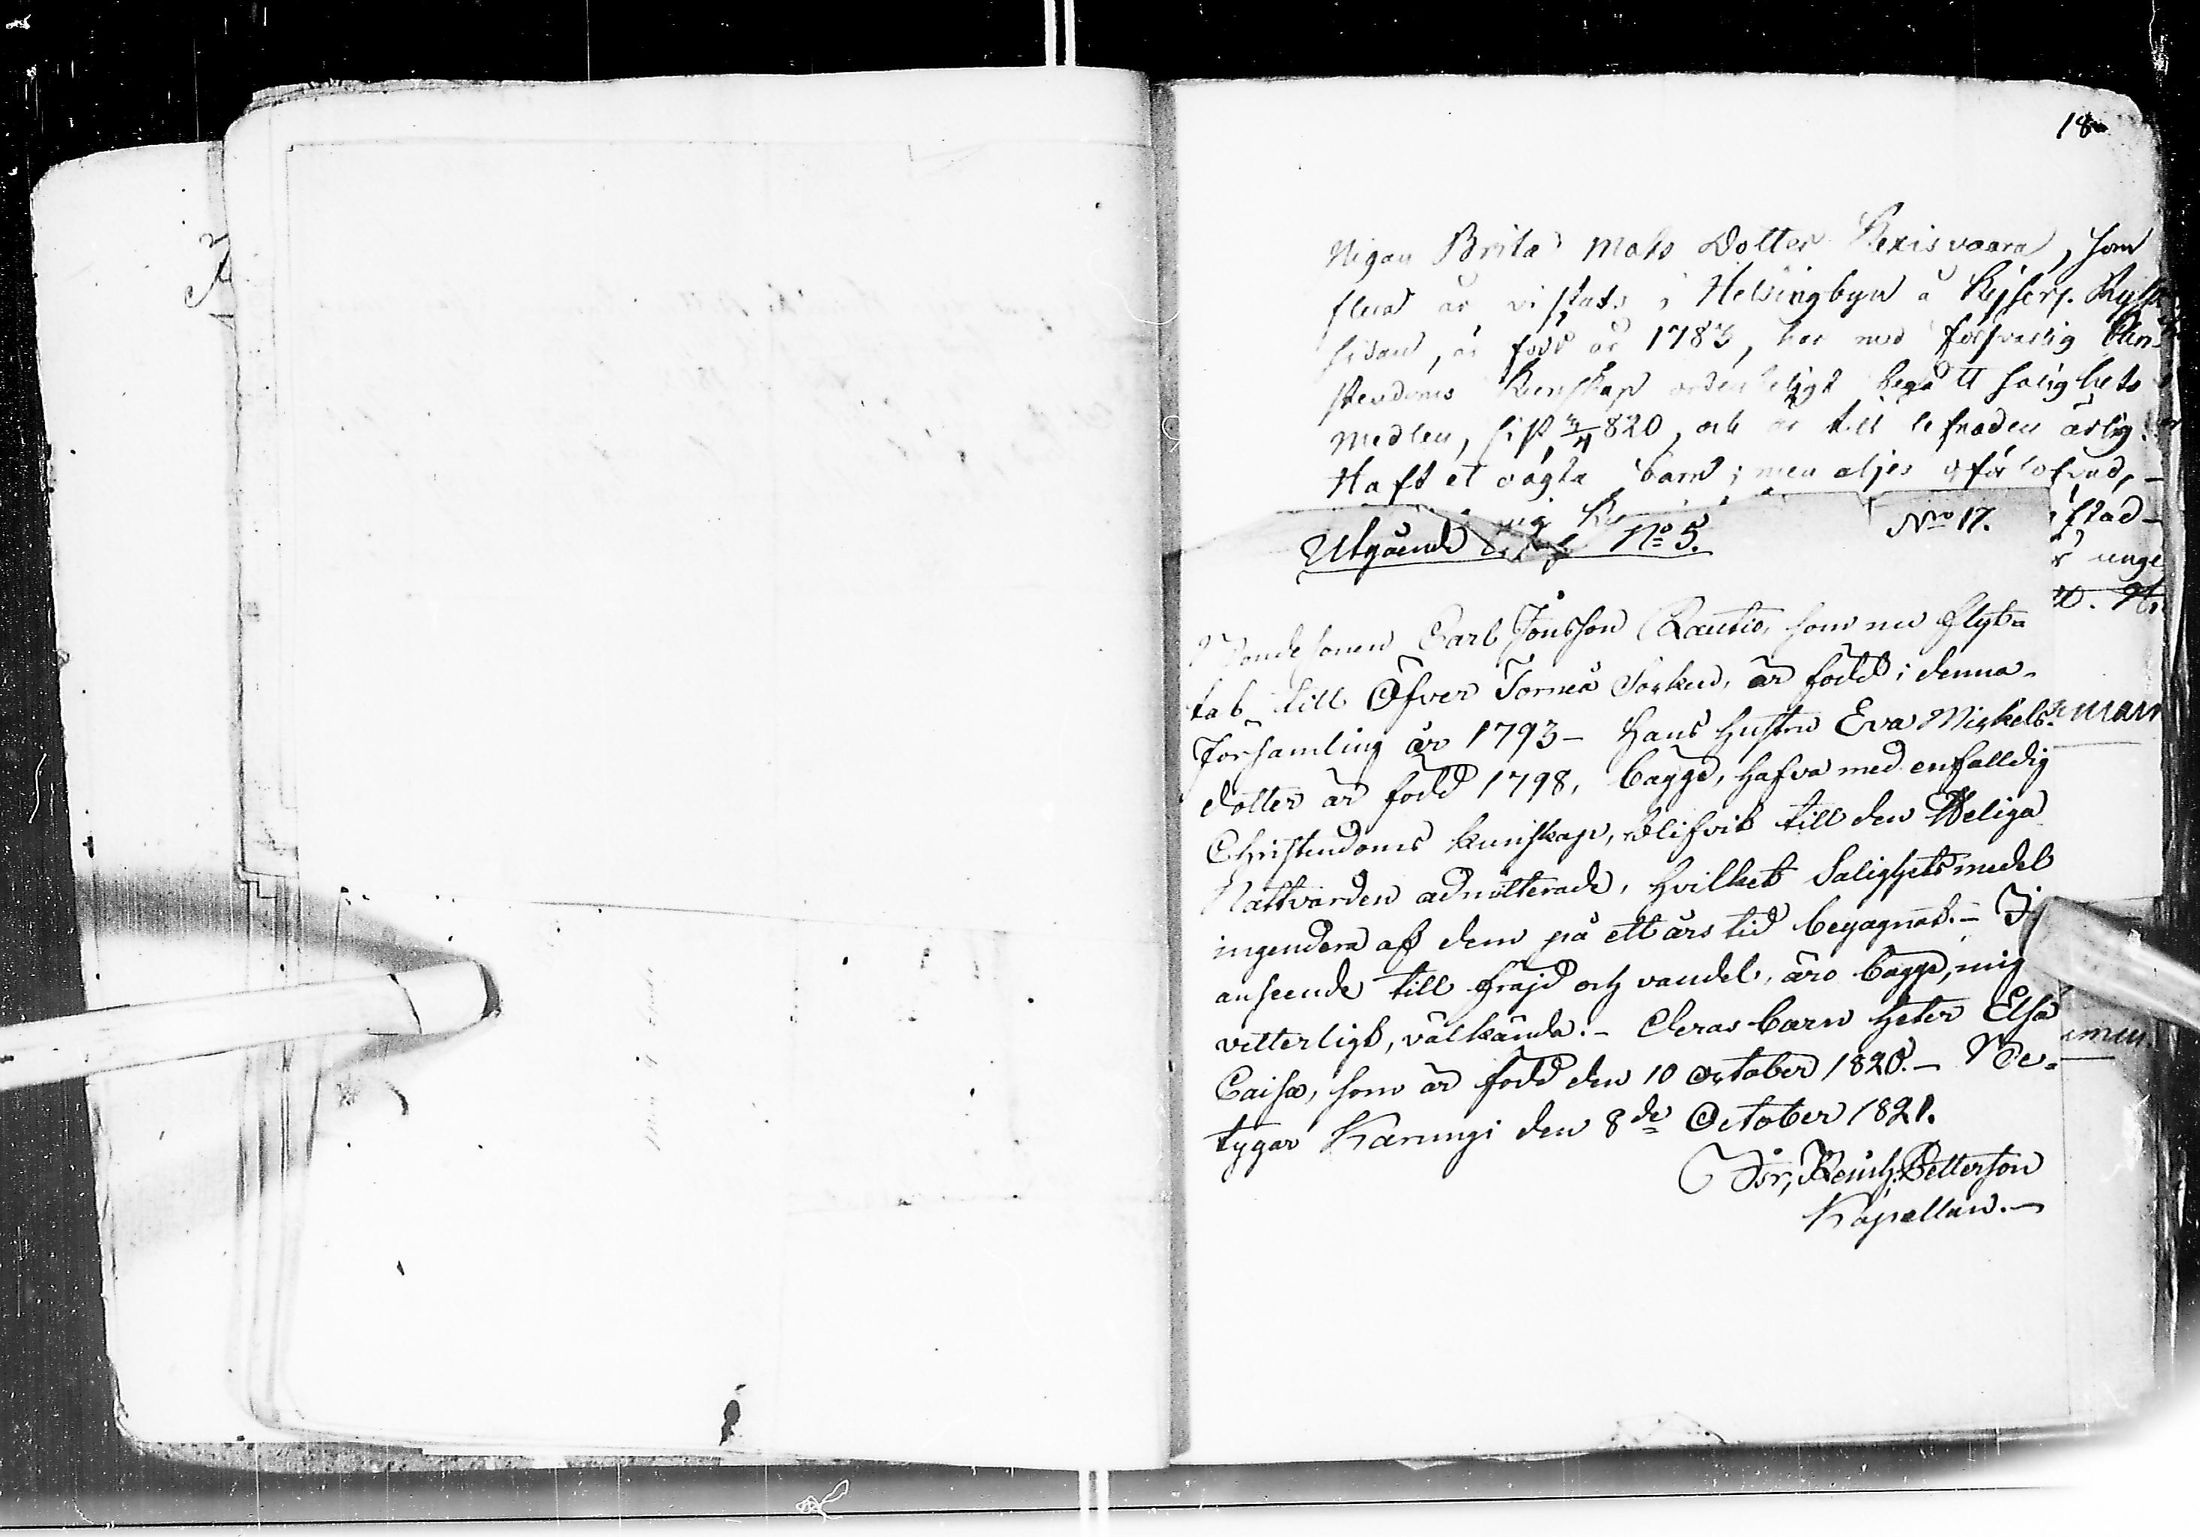 18
Pigan Brita Mats Dotter Rexisvaara, som
flera år vistats i Helsingbyn å Kejserl. Ryska
sidan, är född år 1783, har med försvarlig Chri
stendoms Kunskap ordenteligt begått salighets
medlen, sist 3/4 820, och är till lefnaden ärlig.
Haft et oägta barn; men aljes oförlofvad,
stad-
unge
Utgående N:o 5. Nro 17.
Bondesonen Carl Jönsson Rautio, som nu flyt-
tat till Öfver Torneå Sorken, är född i denna
Församling år 1793 - hans hustru Eva Mickels
dotter är född 1798, bägge, hafva med enfalldig
Christendoms kunskap, blifvit till den Heliga
Nattvarden admitterade, hvilket Salighetsmedel
ingendera af dem på ett års tid begagnat. - I
anseende till fräjd och vandel, äro bägge, mig
vetterligt, välkända. - Deras barn heter Elsa
Caisa, som är född den 10 October 1820. - Be-
tygar Karungi den 8de October 1821.
Isr, Reinh. Petterson
Kapellan. -